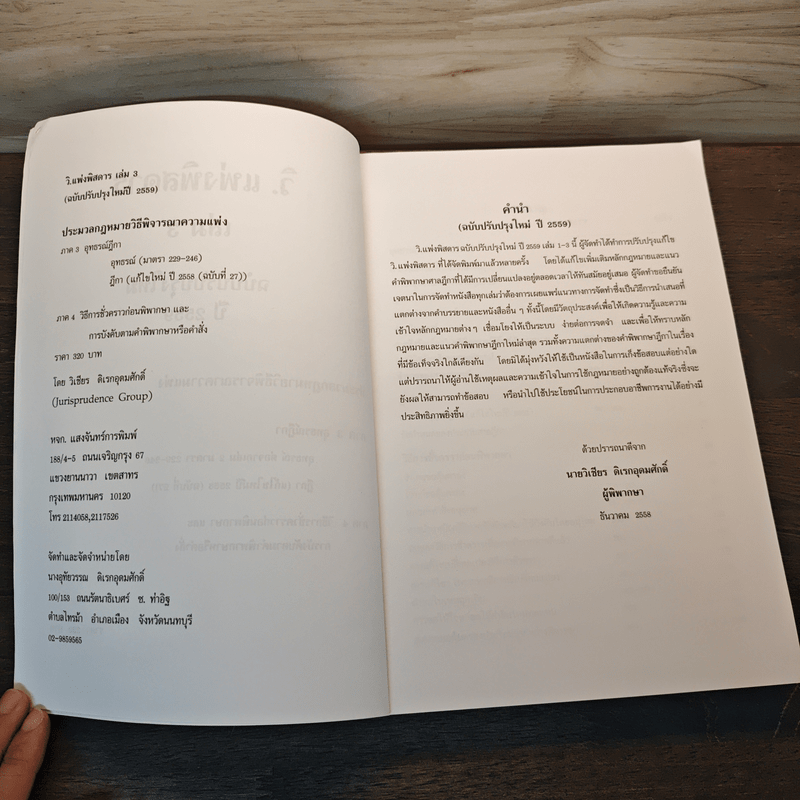 วิ.แพ่งพิสดาร เล่ม 3
(ฉบับปรับปรุงใหม่ปี 2559)
ประมวลกฎหมายวิธีพิจารณาความแพ่ง
ภาค 3 อุทธรณ์ฎีกา
อุทธรณ์ (มาตรา 229-246)
ฎีกา (แก้ไขใหม่ ปี 2558 (ฉบับที่ 27))
ภาค 4 วิธีการชั่วคราวก่อนพิพากษา และ
การบังคับตามคำพิพากษาหรือคำสั่ง
ราคา 320 บาท
โดย วิเชียร ดิเรกอุดมศักดิ์
(Jurisprudence Group)
หจก. แสงจันทร์การพิมพ์
188/4-5 ถนนเจริญกรุง 67
แขวงยานนาวา เขตสาทร
กรุงเทพมหานคร 10120
โทร 2114058,2117526
จัดทำและจัดจำหน่ายโดย
นางอุทัยวรรณ ดิเรกอุดมศักดิ์
100/153 ถนนรัตนาธิเบศร์ ซ. ท่าอิฐ
ตำบลไทรม้า อำเภอเมือง จังหวัดนนทบุรี
02-9859565
คำนำ
(ฉบับปรับปรุงใหม่ ปี 2559)
วิ.แพ่งพิสดาร ฉบับปรับปรุงใหม่ ปี 2559 เล่ม 1-3 นี้ ผู้จัดทำได้ทำการปรับปรุงแก้ไข
วิ.แพ่งพิสดาร ที่ได้จัดพิมพ์มาแล้วหลายครั้ง โดยได้แก้ไขเพิ่มเติมหลักกฎหมายและแนว
คำพิพากษาศาลฎีกาที่ได้มีการเปลี่ยนแปลงอยู่ตลอดเวลาให้ทันสมัยอยู่เสมอ ผู้จัดทำขอยืนยัน
เจตนาในการจัดทำหนังสือทุกเล่มว่าต้องการเผยแพร่แนวทางการจัดทำซึ่งเป็นวิธีการนำเสนอที่
แตกต่างจากคำบรรยายและหนังสืออื่น ๆ ทั้งนี้โดยมีวัตถุประสงค์เพื่อให้เกิดความรู้และความ
เข้าใจหลักกฎหมายต่าง ๆ เชื่อมโยงให้เป็นระบบ ง่ายต่อการจดจำ และเพื่อให้ทราบหลัก
กฎหมายและแนวคำพิพากษาฎีกาใหม่ล่าสุด รวมทั้งความแตกต่างของคำพิพากษาฎีกาในเรื่อง
ที่มีข้อเท็จจริงใกล้เคียงกัน โดยมิได้มุ่งหวังให้ใช้เป็นหนังสือในการเก็งข้อสอบแต่อย่างใด
แต่ปรารถนาให้ผู้อ่านใช้เหตุผลและความเข้าใจในการใช้กฎหมายอย่างถูกต้องแท้จริงซึ่งจะ
ยังผลให้สามารถทำข้อสอบ หรือนำไปใช้ประโยชน์ในการประกอบอาชีพการงานได้อย่างมี
ประสิทธิภาพยิ่งขึ้น
ด้วยปรารถนาดีจาก
นายวิเชียร ดิเรกอุดมศักดิ์
ผู้พิพากษา
ธันวาคม 2558